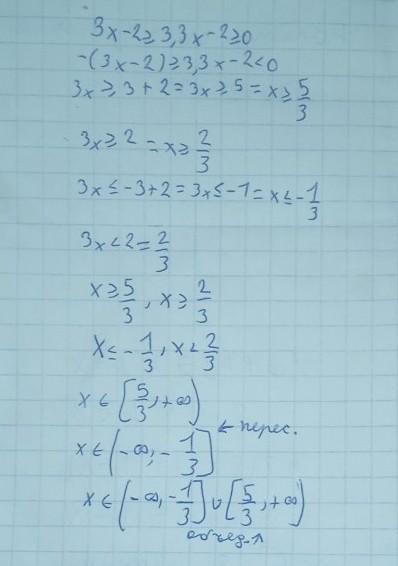 3x-2≥3, 3x-2≥0
-(3x-2)≥3, 3x-2<0
3x≥3+2=3x≥5=x≥5/3
3x≥2=x≥2/3
3x≤-3+2=3x≤-1=x≤-1/3
3x<2=2/3
x≥5/3, x≥2/3
x≤-1/3, x<2/3
x∈[5/3,+∞)
← перес.
x∈(-∞,-1/3]
x∈(-∞,-1/3]∪[5/3,+∞)
объед.↗